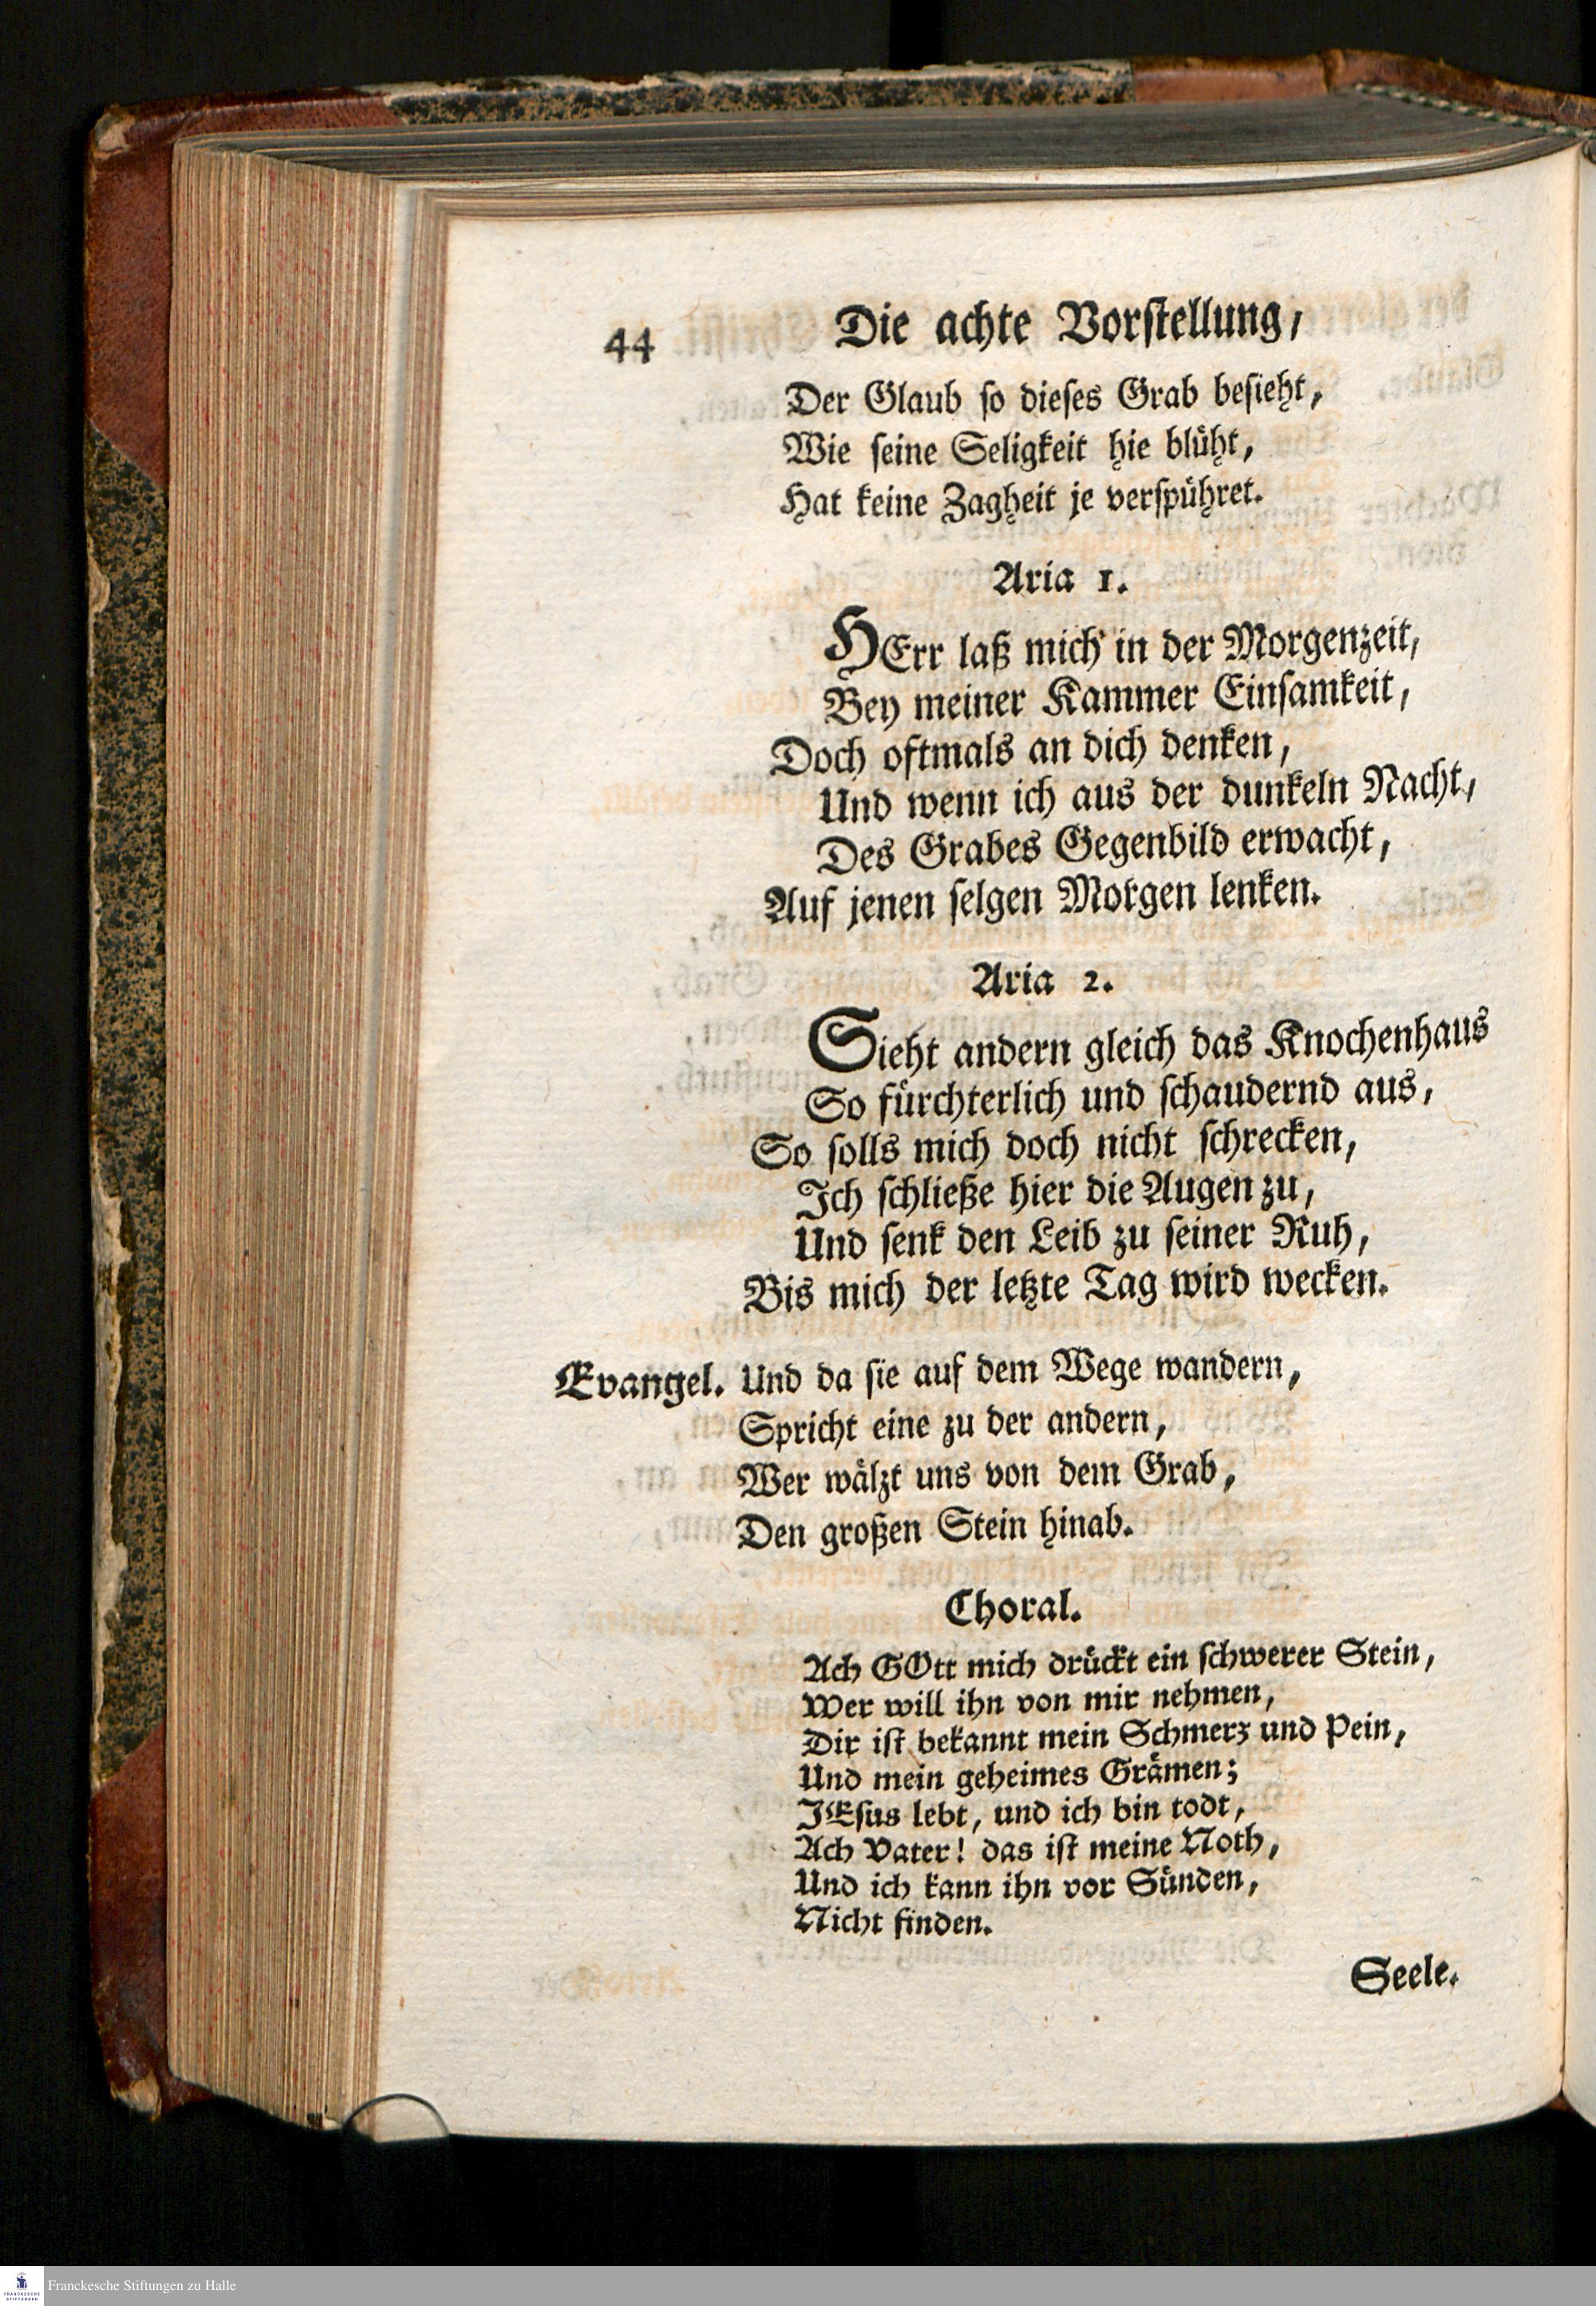 44
Die achte Vorstellung,
Der Glaub so dieses Grab besieht,
Wie seine Seligkeit hie blüht,
Hat keine Zagheit je verspühret.
Aria 1.
HErr laß mich in der Morgenzeit,
Bey meiner Kammer Einsamkeit,
Doch oftmals an dich denken,
Und wenn ich aus der dunkeln Nacht,
Des Grabes Gegenbild erwacht,
Auf jenen selgen Morgen lenken.
Aria 2.
Sieht andern gleich das Knochenhaus
So fürchterlich und schaudernd aus,
So solls mich doch nicht schrecken,
Ich schließe hier die Augen zu,
Und senk den Leib zu seiner Ruh,
Bis mich der letzte Tag wird wecken.
Evangel. Und da sie auf dem Wege wandern,
Spricht eine zu der andern,
Wer wälzt uns von dem Grab,
Den großen Stein hinab.
Choral.
Ach GOtt mich drückt ein schwerer Stein,
Wer will ihn von mir nehmen,
Dir ist bekannt mein Schmerz und Pein,
Und mein geheimes Grämen;
JEsus lebt, und ich bin todt,
Ach Vater! das ist meine Noth,
Und ich kann ihn vor Sünden,
Nicht finden.
Seele.
FRANCKESCHE STIFTUNGEN
Franckesche Stiftungen zu Halle